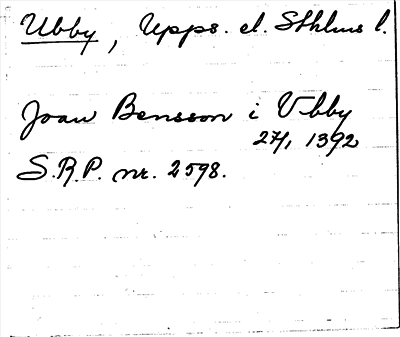 Ubby, Upps. el. Sthlms l.
Joan Bensson i Vbby
27/1 1392
S.R.P. nr. 2598.